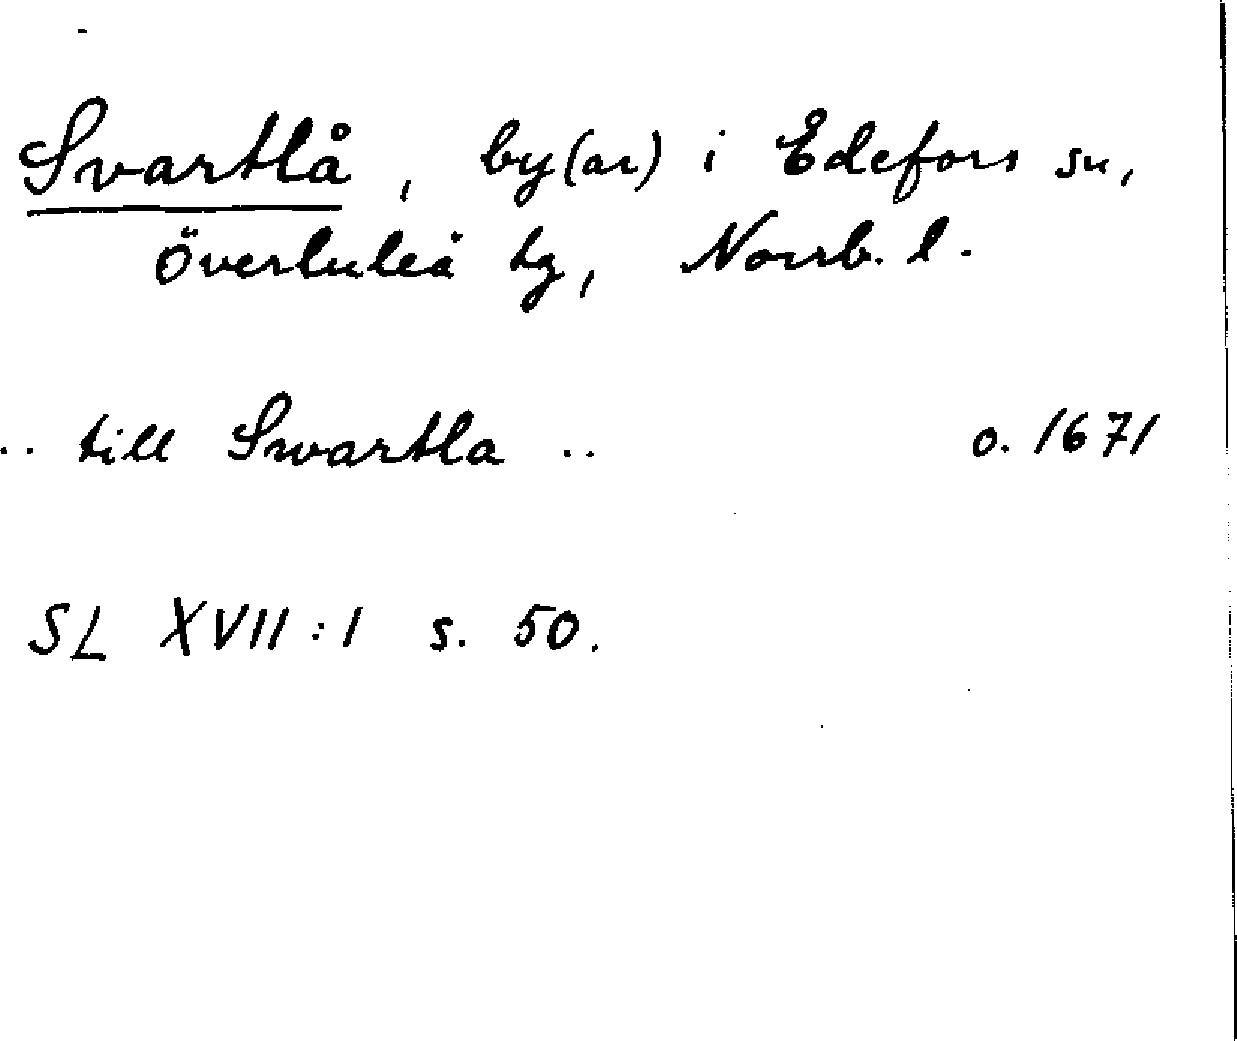 Svartlå, by(ar) i Edefors sn,
Överluleå tg, Norrb. l.
.. till Swartla .. o. 1671
SL XVII:1 s. 50.